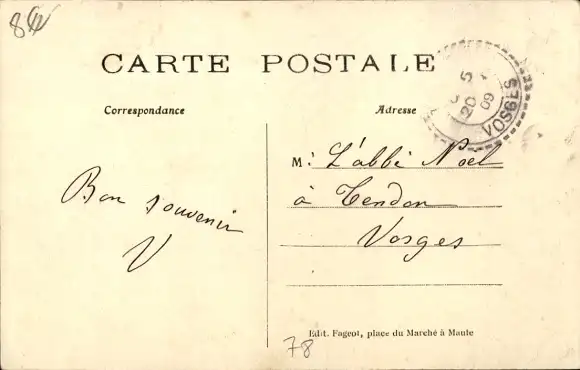 84
CARTE POSTALE
Correspondance
Adresse
20 5
09
VOSGES
M: L'abbé Noël
à Tendon
Vosges
Bon souvenir
V
Edit. Fageot, place du Marché à Maule
78